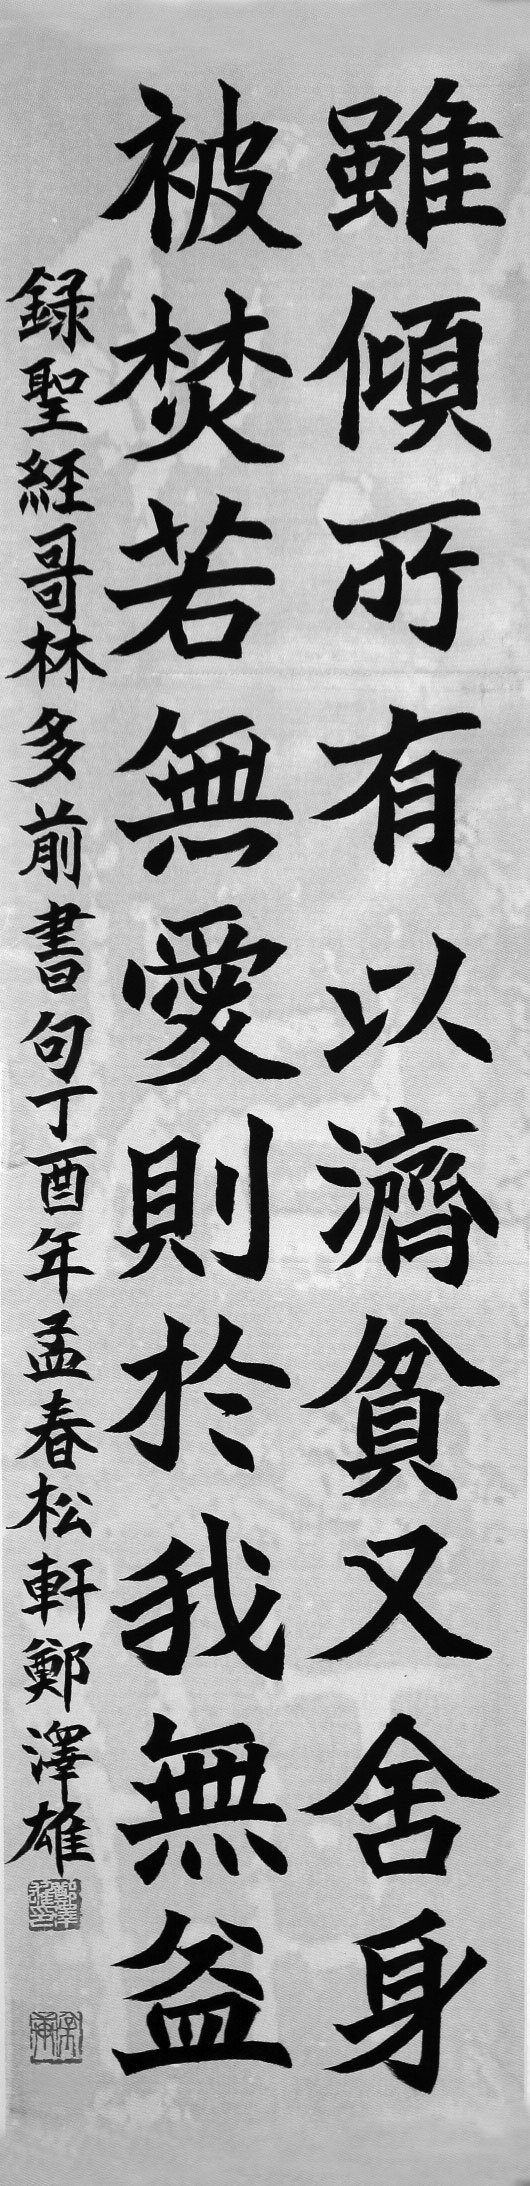 雖傾所有以濟貧又舍身
被焚若無愛則於我無益
録聖經哥林多前書句丁酉年孟春松軒鄭澤雄